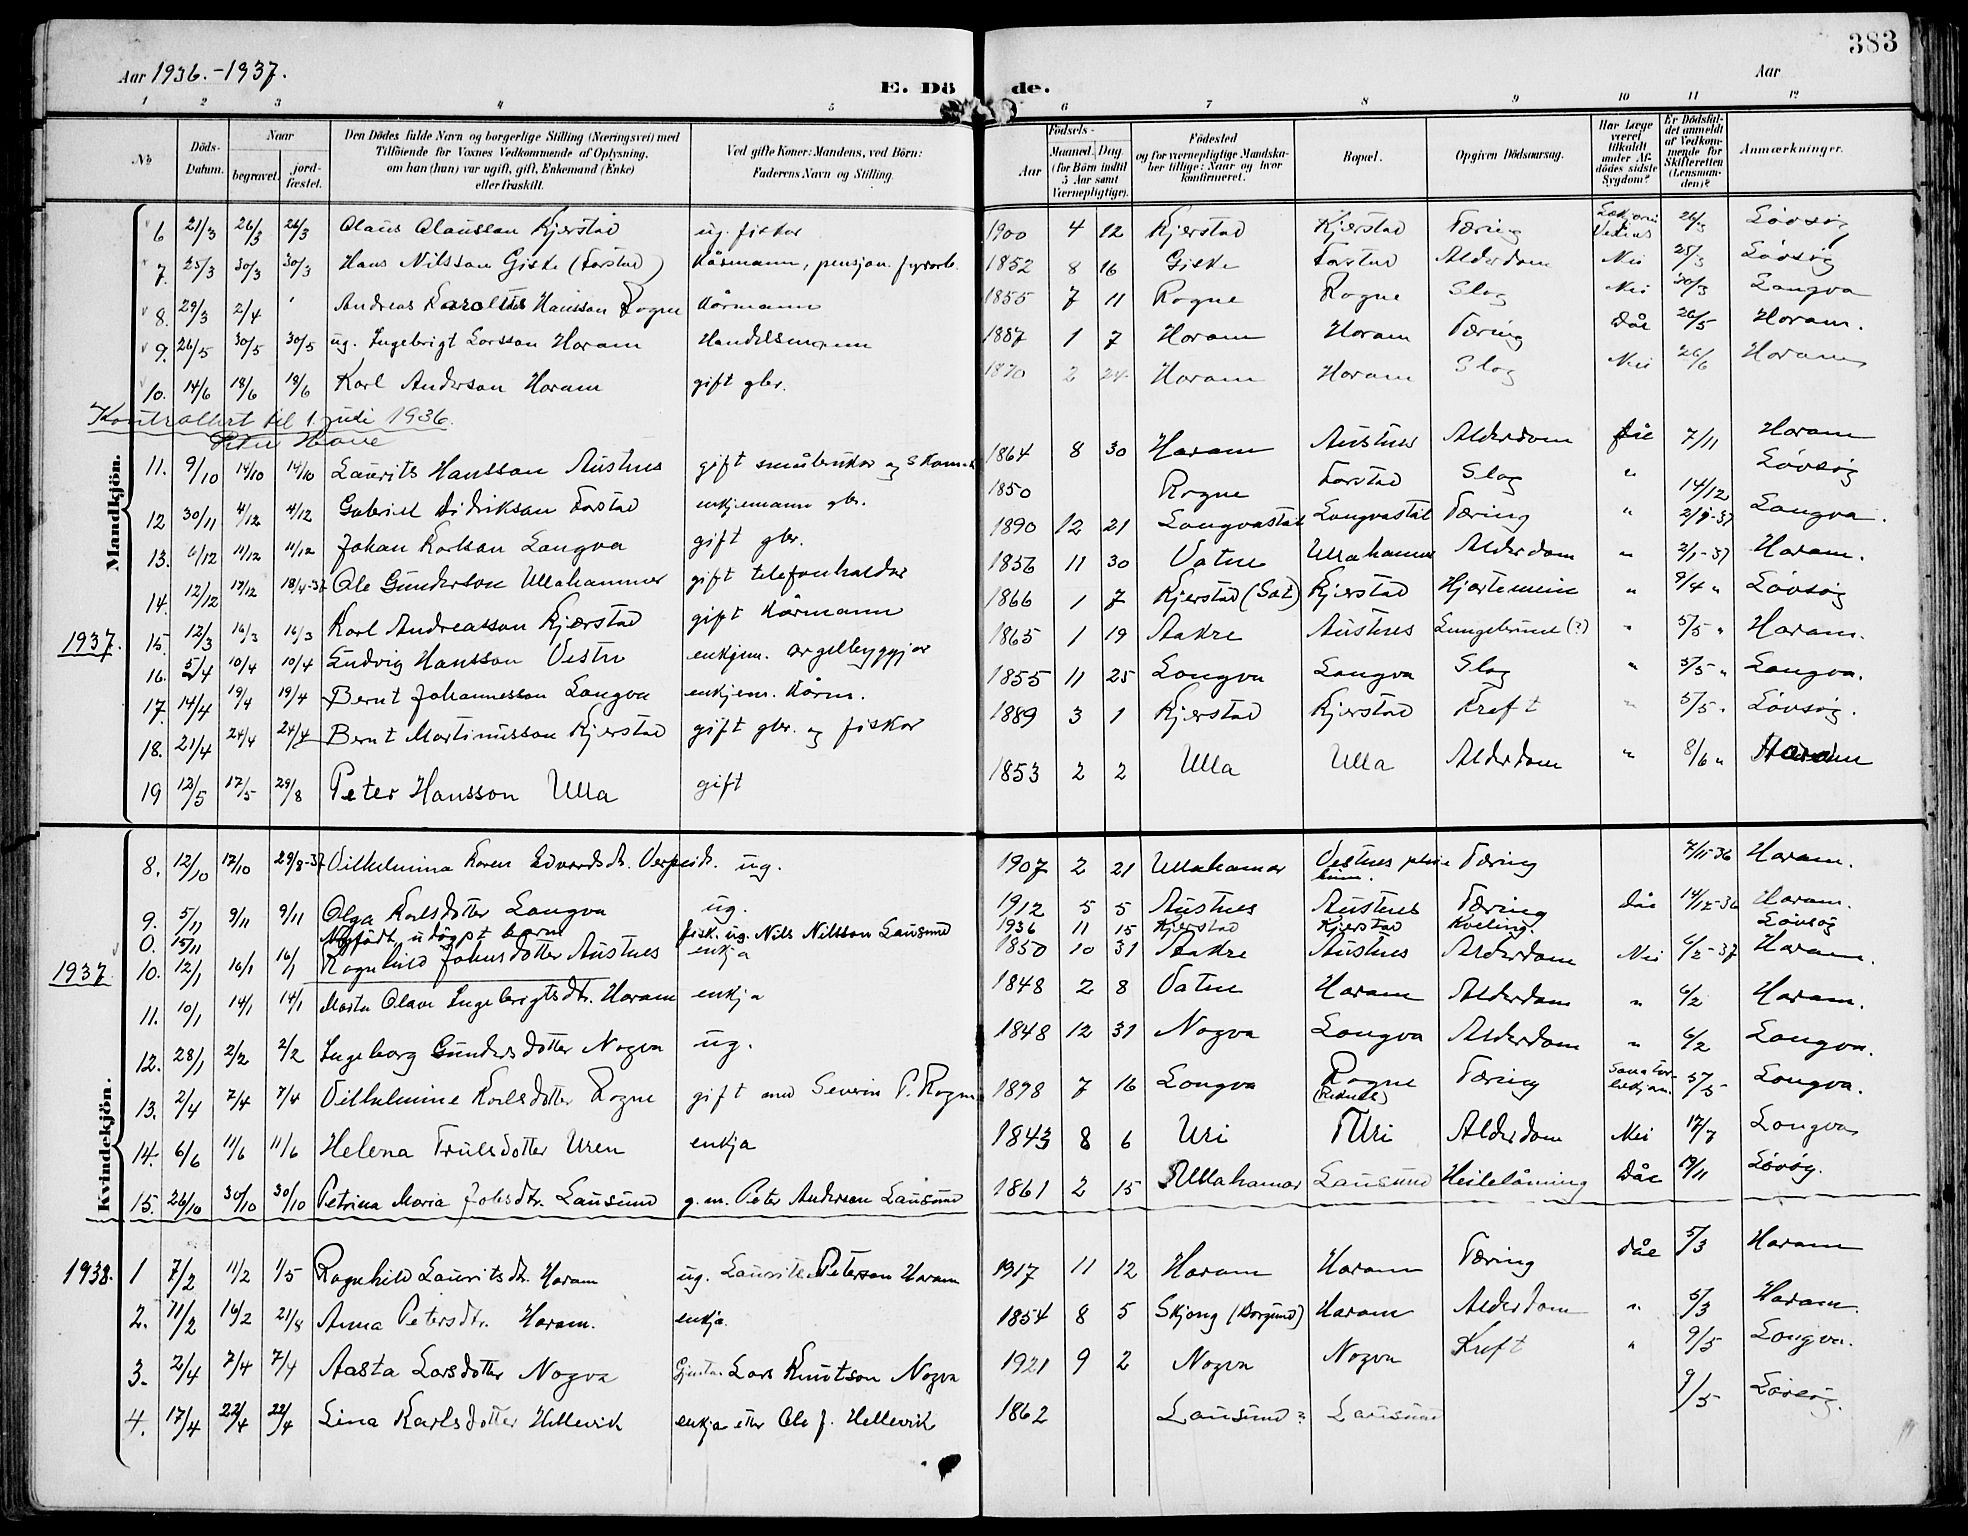 383
Aar 1936.-1937.
E. Dö de.
Aar
1 2 3 4 5 6 7 8 9 10 11 12
No
Döds-Datum.
Naar
begravet.
jordfæstet.
Den Dödes fulde Navn og borgerlige Stilling (Næringsvei) med
Tilföiende for Voxnes Vedkommende af Oplysning.
om han (hun) var ugift, gift, Enkemand (Enke)
eller fraskilt.
Ved gifte Koner: Mandens, ved Börn:
Faderens Navn og Stilling.
Födsels-
Aar
Maaned. Dag
(for Börn indtil
5 Aar samt
Værnepligtige).
Födested
og for værnepligtige Mandska-
ber tillige: Naar og hvor
konfirmeret.
Bopæl.
Opgiven Dödsaarsag.
Har Læge
været
tilkaldt
under Af-
dödes sidste
Sygdom?
Er Dödsfal-
det anmeldt
af Vedkom-
mende for
Skifteretten
(Lensman-
den)?
Anmærkninger.
Mandkjön.
6 21/3 26/3 26/3 Olaus Olausson Kjerstad ug. fiskar 1900 4 12 Kjerstad Kjerstad Tæring 26/3 Lövsög
7. 25/3 30/3 30/3 Hans Nilsson Giske (Farstad) Kårmann, pensjon. fyrarb. 1852 8 16 Giske Farstad Alderdom Nei 25/3 Lövsög
8. 29/3 2/4 " Andreas Karolius Hansson Rogne Kårmann 1855 7 11 Rogne Rogne Slag Nei 30/3 Longva
9. 26/5 30/5 30/5 ug. Ingebrigt Larsson Haram Handelsmann 1887 1 7 Haram Haram Tæring Dåe 26/5 Haram.
10. 14/6 18/6 18/6 Karl Anderson Haram gift gbr. 1870 2 24 Haram Haram Slag Nei 26/6 Haram
Kontrollert til 1. juli 1936.
11. 9/10 14/10 14/10 Laurits Hansson Austnes gift småbrukar og 1864 8 30 Haram Austnes Alderdom 7/11 Haram
12 30/11 4/12 4/12 Gabriel Didrikson Farstad enkjemann gbr. 1850 Rogne Farstad Slag " 14/12 Lövsög
13. 6/12 11/12 11/12 Johan Karlson Longva gift gbr. 1890 12 21 Longvastal Longvastal Tæring " 2/1-37 Longva.
14. 12/12 17/12 18/4-37 Ole Gunderson Ullahammer gift telefonhaldar 1856 11 30 Vatne Ullahamar Alderdom " 2/1-37 Haram.
1937. 15. 12/3 16/3 16/3 Karl Andreasson Kjærstad gift Kårmann 1866 1 7 Kjerstad (Gat) Kjerstad Hjartemein " 9/4 " Lövsög
16. 5/4 10/4 10/4 Ludvig Hansson Vestre enkjem. orgelbyggjar 1865 1 19 Aakre Austnes Lungebrand (?) " 5/5 " Haram.
17. 14/4 19/4 19/4 Bernt Johannesson Longva enkjem. Kårm. 1855 11 25 Longva Longva Slag " 5/5 " Longva.
18. 21/4 24/4 24/4 Bernt Martinusson Kjerstad gift gbr. og fiskar 1889 3 1 Kjerstad Kjerstad Kreft " 5/5 " Lövsög.
19 12/5 17/5 29/8 Peter Hansson Ulla gift 1853 2 2 Ulla Ulla Alderdom " 8/6 " Haram
Kvindekjön.
8. 12/10 17/10 29/8-37 Vilhelmina Karen Edvardsdt. ug. 1907 2 21 Ullahamar Vestnes Tæring 7/11-36 Haram.
9. 5/11 9/11 9/11 Olga Karlsdotter Longva ug. 1912 5 5 Austnes Austnes Tæring Dåe 14/12-36 Haram.
0. 15/11 Nyfödt udöypt barn fisk. ug. Nils Nilsson Lausund 1936 11 15 Kjerstad Kjerstad Kveling. Lövsög
1937 10. 12/1 16/1 16/1 Ragnhild Johnsdotter Austnes enkja 1850 10 31 Aakre Austnes Alderdom Nei 6/2-37 Haram.
11. 10/1 14/1 14/1 Marta Olave Ingebrigtsdtr. Haram enkja 1848 2 8 Vatne Haram Alderdom " 6/2 Haram.
12. 28/1 2/2 2/2 Ingeborg Gundersdotter Nogva ug. 1848 12 31 Nogva Longva Alderdom " 6/2 Longva.
13. 2/4 7/4 7/4 Vilhelmine Karlsdotter Rogne gift med Severin P. Rogne 1878 7 16 Longva Rogne Tæring 5/5 Longva.
14. 6/6 11/6 11/6 Helena Trulsdotter Uren enkja 1843 8 6 Uri Uri Alderdom Nei 17/7 Longva
15. 26/10 30/10 30/10 Petrina Maria Johsdtr. Lausund g.m. Peter Anderson Lausund 1861 2 15 Ullahamar Lausund Heilelåming Dåe 19/11 Lövsög.
1938. 1 7/2 11/2 1/5 Ragnhild Lauritsdt. Haram ug. Laurits Peterson Haram 1917 11 12 Haram Haram Tæring Dåe 5/3 Haram
2. 11/2 16/2 21/8 Anna Petersdtr. Haram. enkja. 1854 8 5 Skjong (Borgund) Haram Alderdom " 5/3 Haram.
3. 2/4 7/4 7/4 Aasta Larsdotter Nogva Lars Knutson Nogva 1921 9 2 Nogva Nogva Kreft " 9/5 Longva.
4. 17/4 22/4 22/4 Lina Karlsdotter Hellevik enkja etter Ole J. Hellevik 1862 Lausund ? Lausund 9/5 Lövsög.